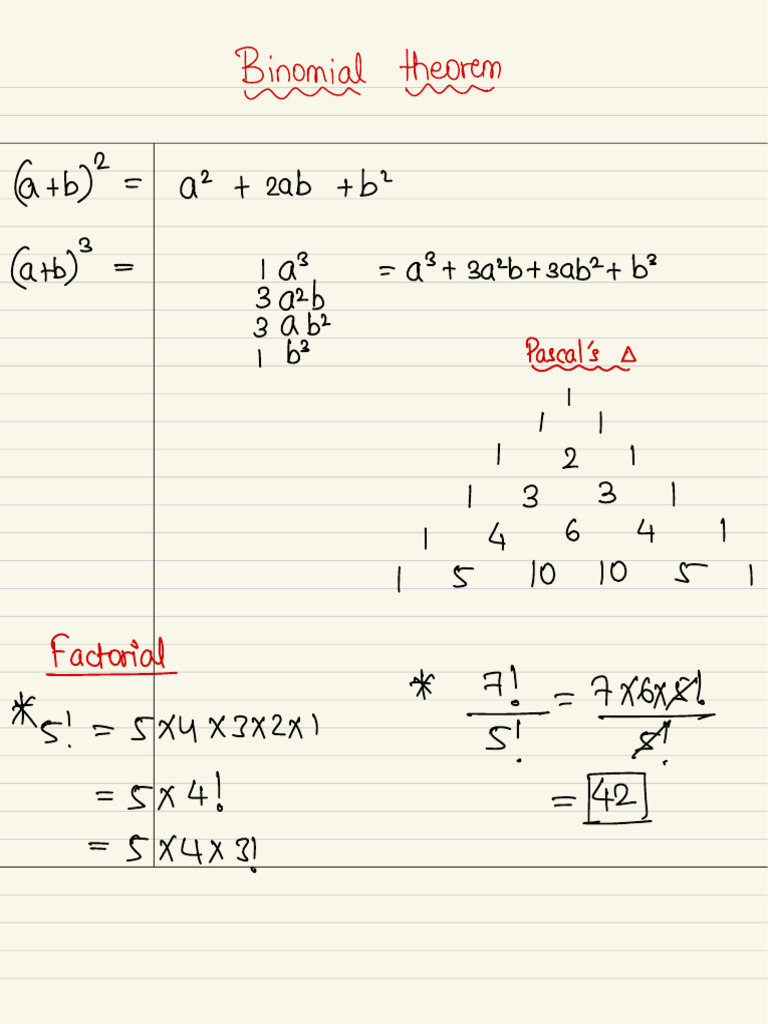 Binomial theorem
(a+b)² = a² + 2ab + b²
(a+b)³ = 1 a³ = a³ + 3a²b + 3ab² + b³
3 a²b
3 ab²
1 b³
Pascal's Δ
1
1 1
1 2 1
1 3 3 1
1 4 6 4 1
1 5 10 10 5 1
Factorial
* 5! = 5×4×3×2×1
= 5×4!
= 5×4×3!
* 7!/5! = 7×6×5!/5!
= 42